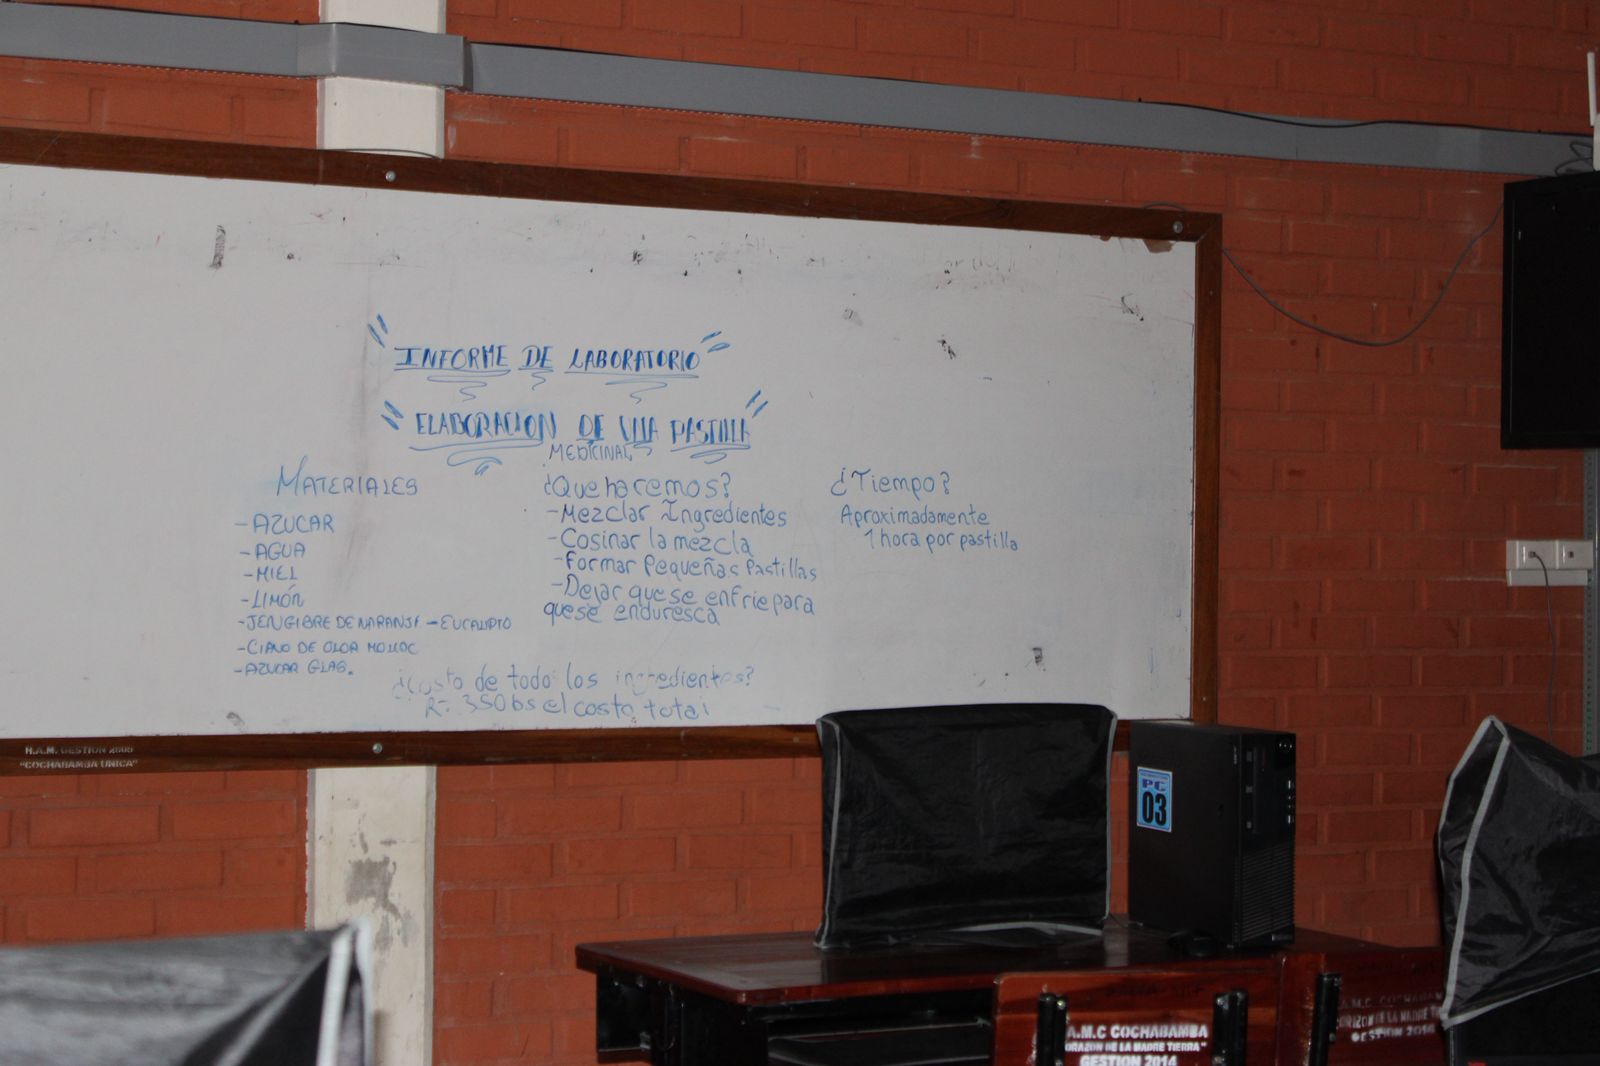 "INFORME DE LABORATORIO"
"ELABORACION DE UNA PASTILLA"
MEDICINAL
MATERIALES
- AZUCAR
- AGUA
- MIEL
- LIMÓN
- JENGIBRE DE NARANJA - EUCALIPTO
- DE OLOR
- AZUCAR GLAS.
¿Que haremos?
- Mezclar Ingredientes
- Cosinar la mezcla
- Formar Pequeñas Pastillas
- Dejar que se enfrie para
que se enduresca
¿Tiempo?
Aproximadamente
1 hora por pastilla
¿Costo de todo los ingredientes?
R= 350 bs el costo total
H.A.M. GESTION
"COCHABAMBA UNICA"
PC
03
A.M.C COCHABAMBA
CORAZON DE LA MADRE TIERRA"
GESTION 2014
A.M.C. COCHABAM
CORAZON DE LA MADRE TI
GESTION 2014